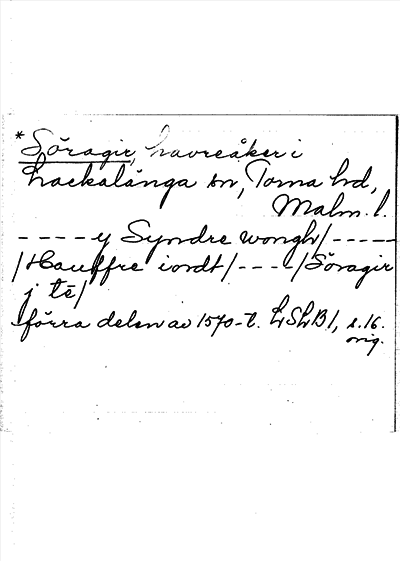 *Söragir, havreåker i
Lackalånga sn, Torna hd,
Malm. l.
----y Syndre wongh/-----
/Hauffre iordt/---/Söragir
j tē/
förra delen av 1570-t. LSLB1, s.16.
orig.